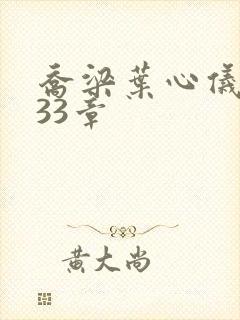 乔梁葉心儀
33章
黄大尚